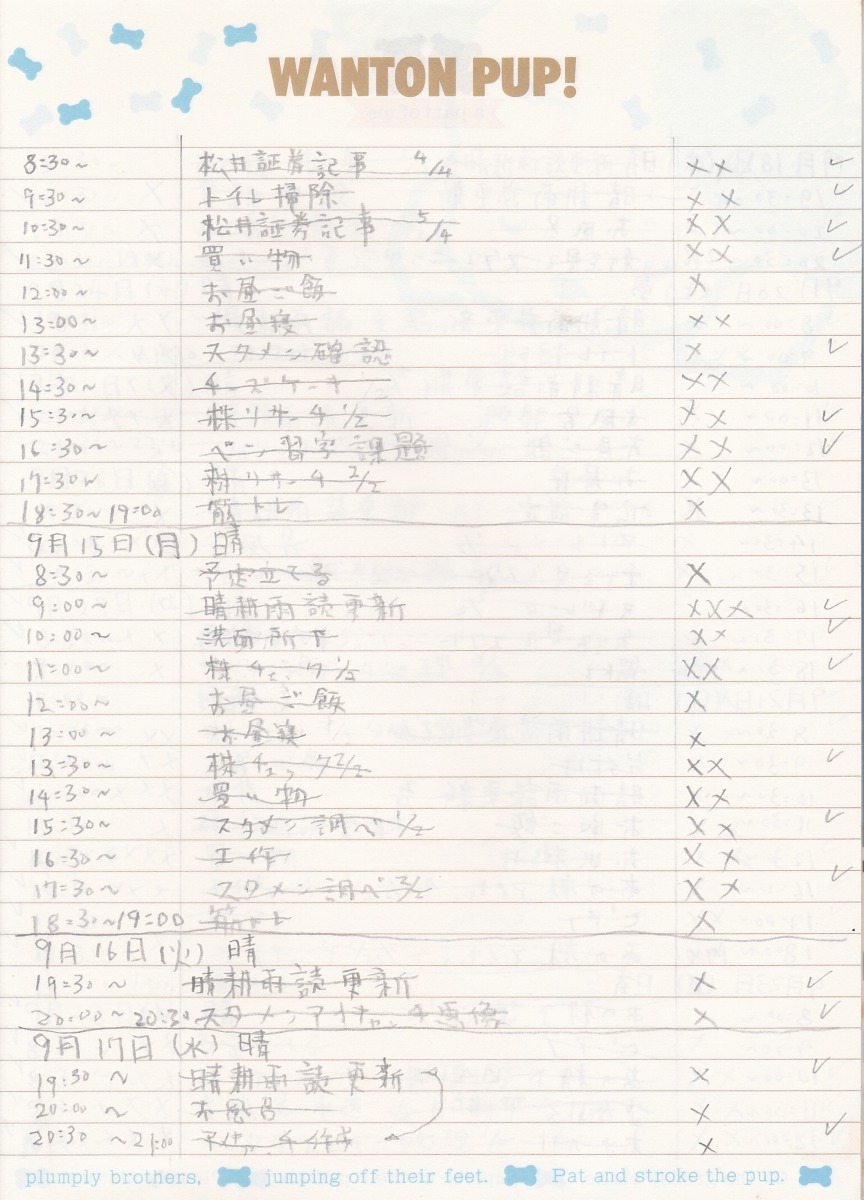 WANTON PUP!
8:30~ 松井証券記事 4/4 ×× ✓
9:30~ トイレ掃除 ×× ✓
10:30~ 松井証券記事 5/4 ×× ✓
11:30~ 買い物 ×× ✓
12:00~ お昼ご飯 ×
13:00~ お昼寝 ××
13:30~ スタメン確認 × ✓
14:30~ チーズケーキ 1/2 ××
15:30~ 株リサーチ 1/2 ×× ✓
16:30~ ペン習字課題 ×× ✓
17:30~ 株リサーチ 2/2 ××
18:30~19:00 筋トレ ×
9月15日(月) 晴
8:30~ 予定立てる ×
9:00~ 晴耕雨読更新 ××× ✓
10:00~ 洗面所下 ×× ✓
11:00~ 株チェック 1/2 ×× ✓
12:00~ お昼ご飯 ×
13:00~ お昼寝 ×
13:30~ 株チェック 2/2 ×× ✓
14:30~ 買い物 ××
15:30~ スタメン調べ 1/2 ×× ✓
16:30~ 工作 ××
17:30~ スタメン調べ 2/2 ×× ✓
18:30~19:00 筋トレ ×
9月16日(火) 晴
19:30~ 晴耕雨読更新 × ✓
20:00~20:30 スタメン画像 × ✓
9月17日(水) 晴
19:30~ 晴耕雨読更新 × ✓
20:00~ お風呂 ×
20:30~21:00 作成 × ✓
plumply brothers, jumping off their feet. Pat and stroke the pup.